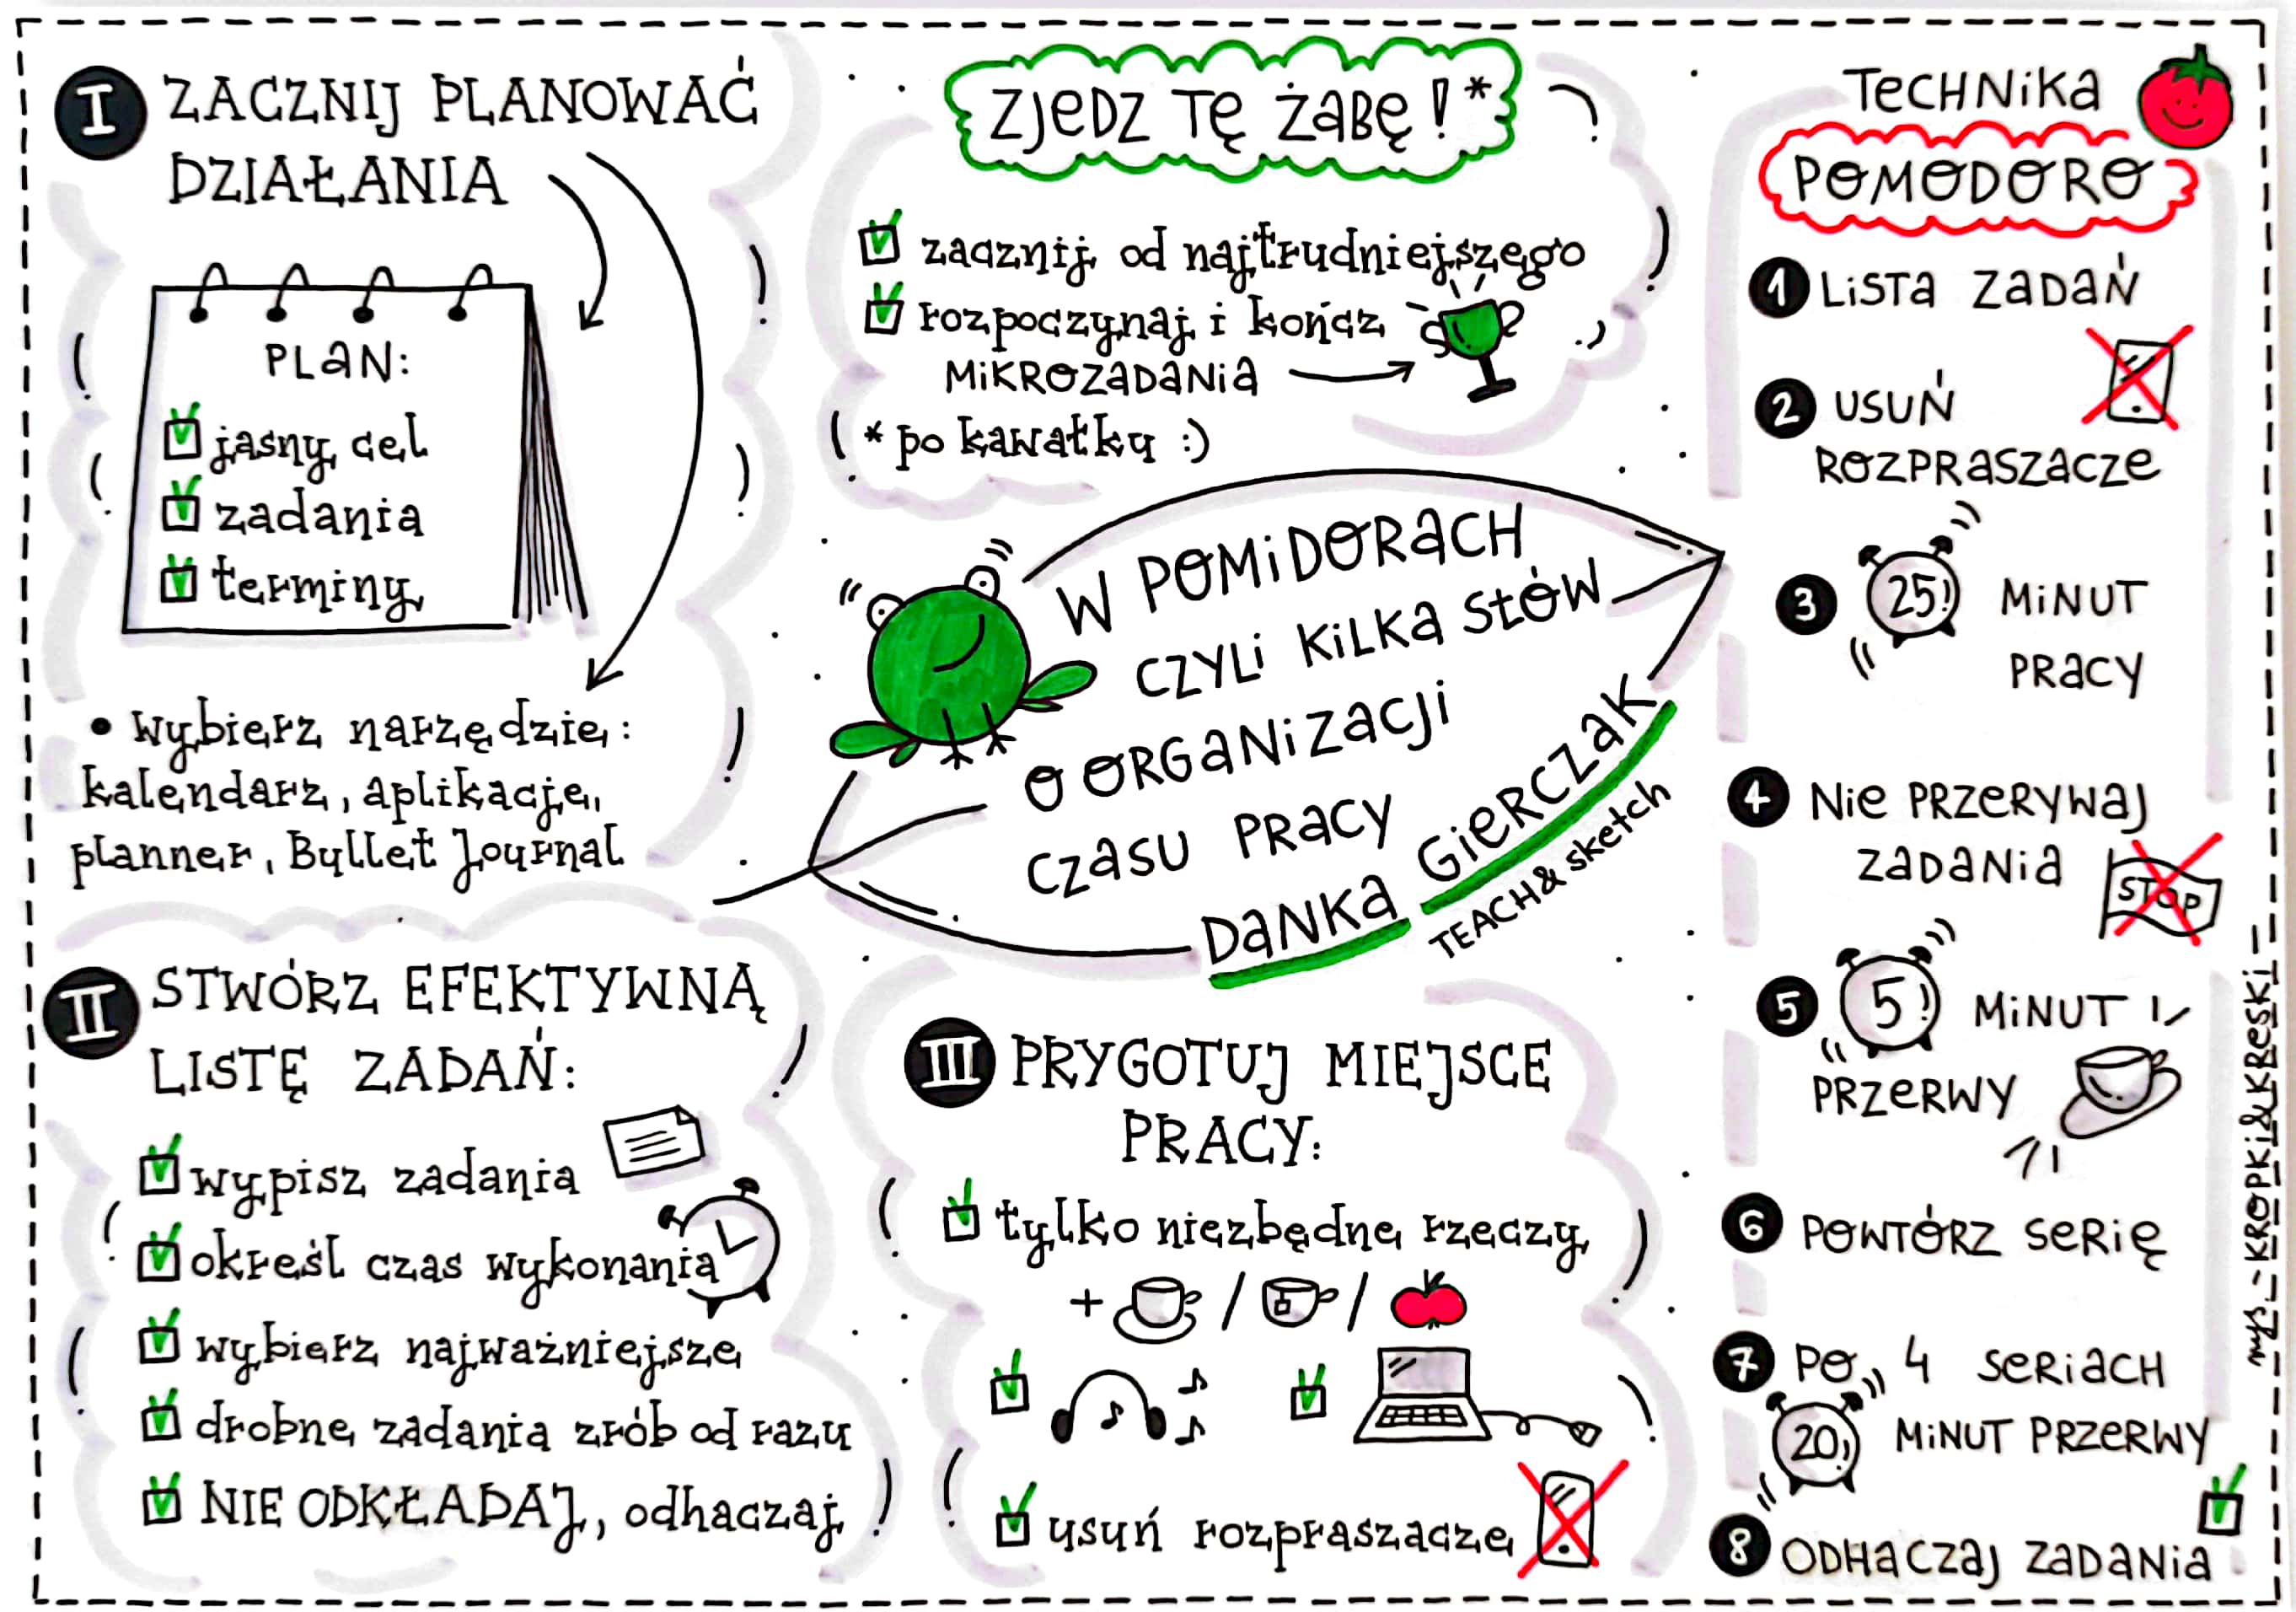 I ZACZNIJ PLANOWAĆ
DZIAŁANIA
PLAN:
jasny cel
zadania
terminy
• Wybierz narzędzie:
kalendarz, aplikacje,
planner, Bullet Journal
II STWÓRZ EFEKTYWNĄ
LISTĘ ZADAŃ:
wypisz zadania
określ czas wykonania
wybierz najważniejsze
drobne zadania zrób od razu
NIE ODKŁADAJ, odhaczaj
ZJEDZ TĘ ŻABĘ!*
zacznij od najtrudniejszego
rozpoczynaj i kończ
MIKROZADANIA
* po kawałku :)
W POMIDORACH
CZYLI KILKA SŁÓW
O ORGANIZACJI
CZASU PRACY
DANKA GIERCZAK
TEACH & sketch
III PRYGOTUJ MIEJSCE
PRACY:
tylko niezbędne rzeczy
+ / /
usuń rozpraszacze
TECHNIKA
POMODORO
1 LISTA ZADAŃ
2 USUŃ
ROZPRASZACZE
3 25! MINUT
PRACY
4 NIE PRZERYWAJ
ZADANIA
STOP
5 5! MINUT
PRZERWY
6 POWTÓRZ SERIĘ
7 PO 4 SERIACH
20! MINUT PRZERWY
8 ODHACZAJ ZADANIA
mys_-KROPKI&KRESKI-